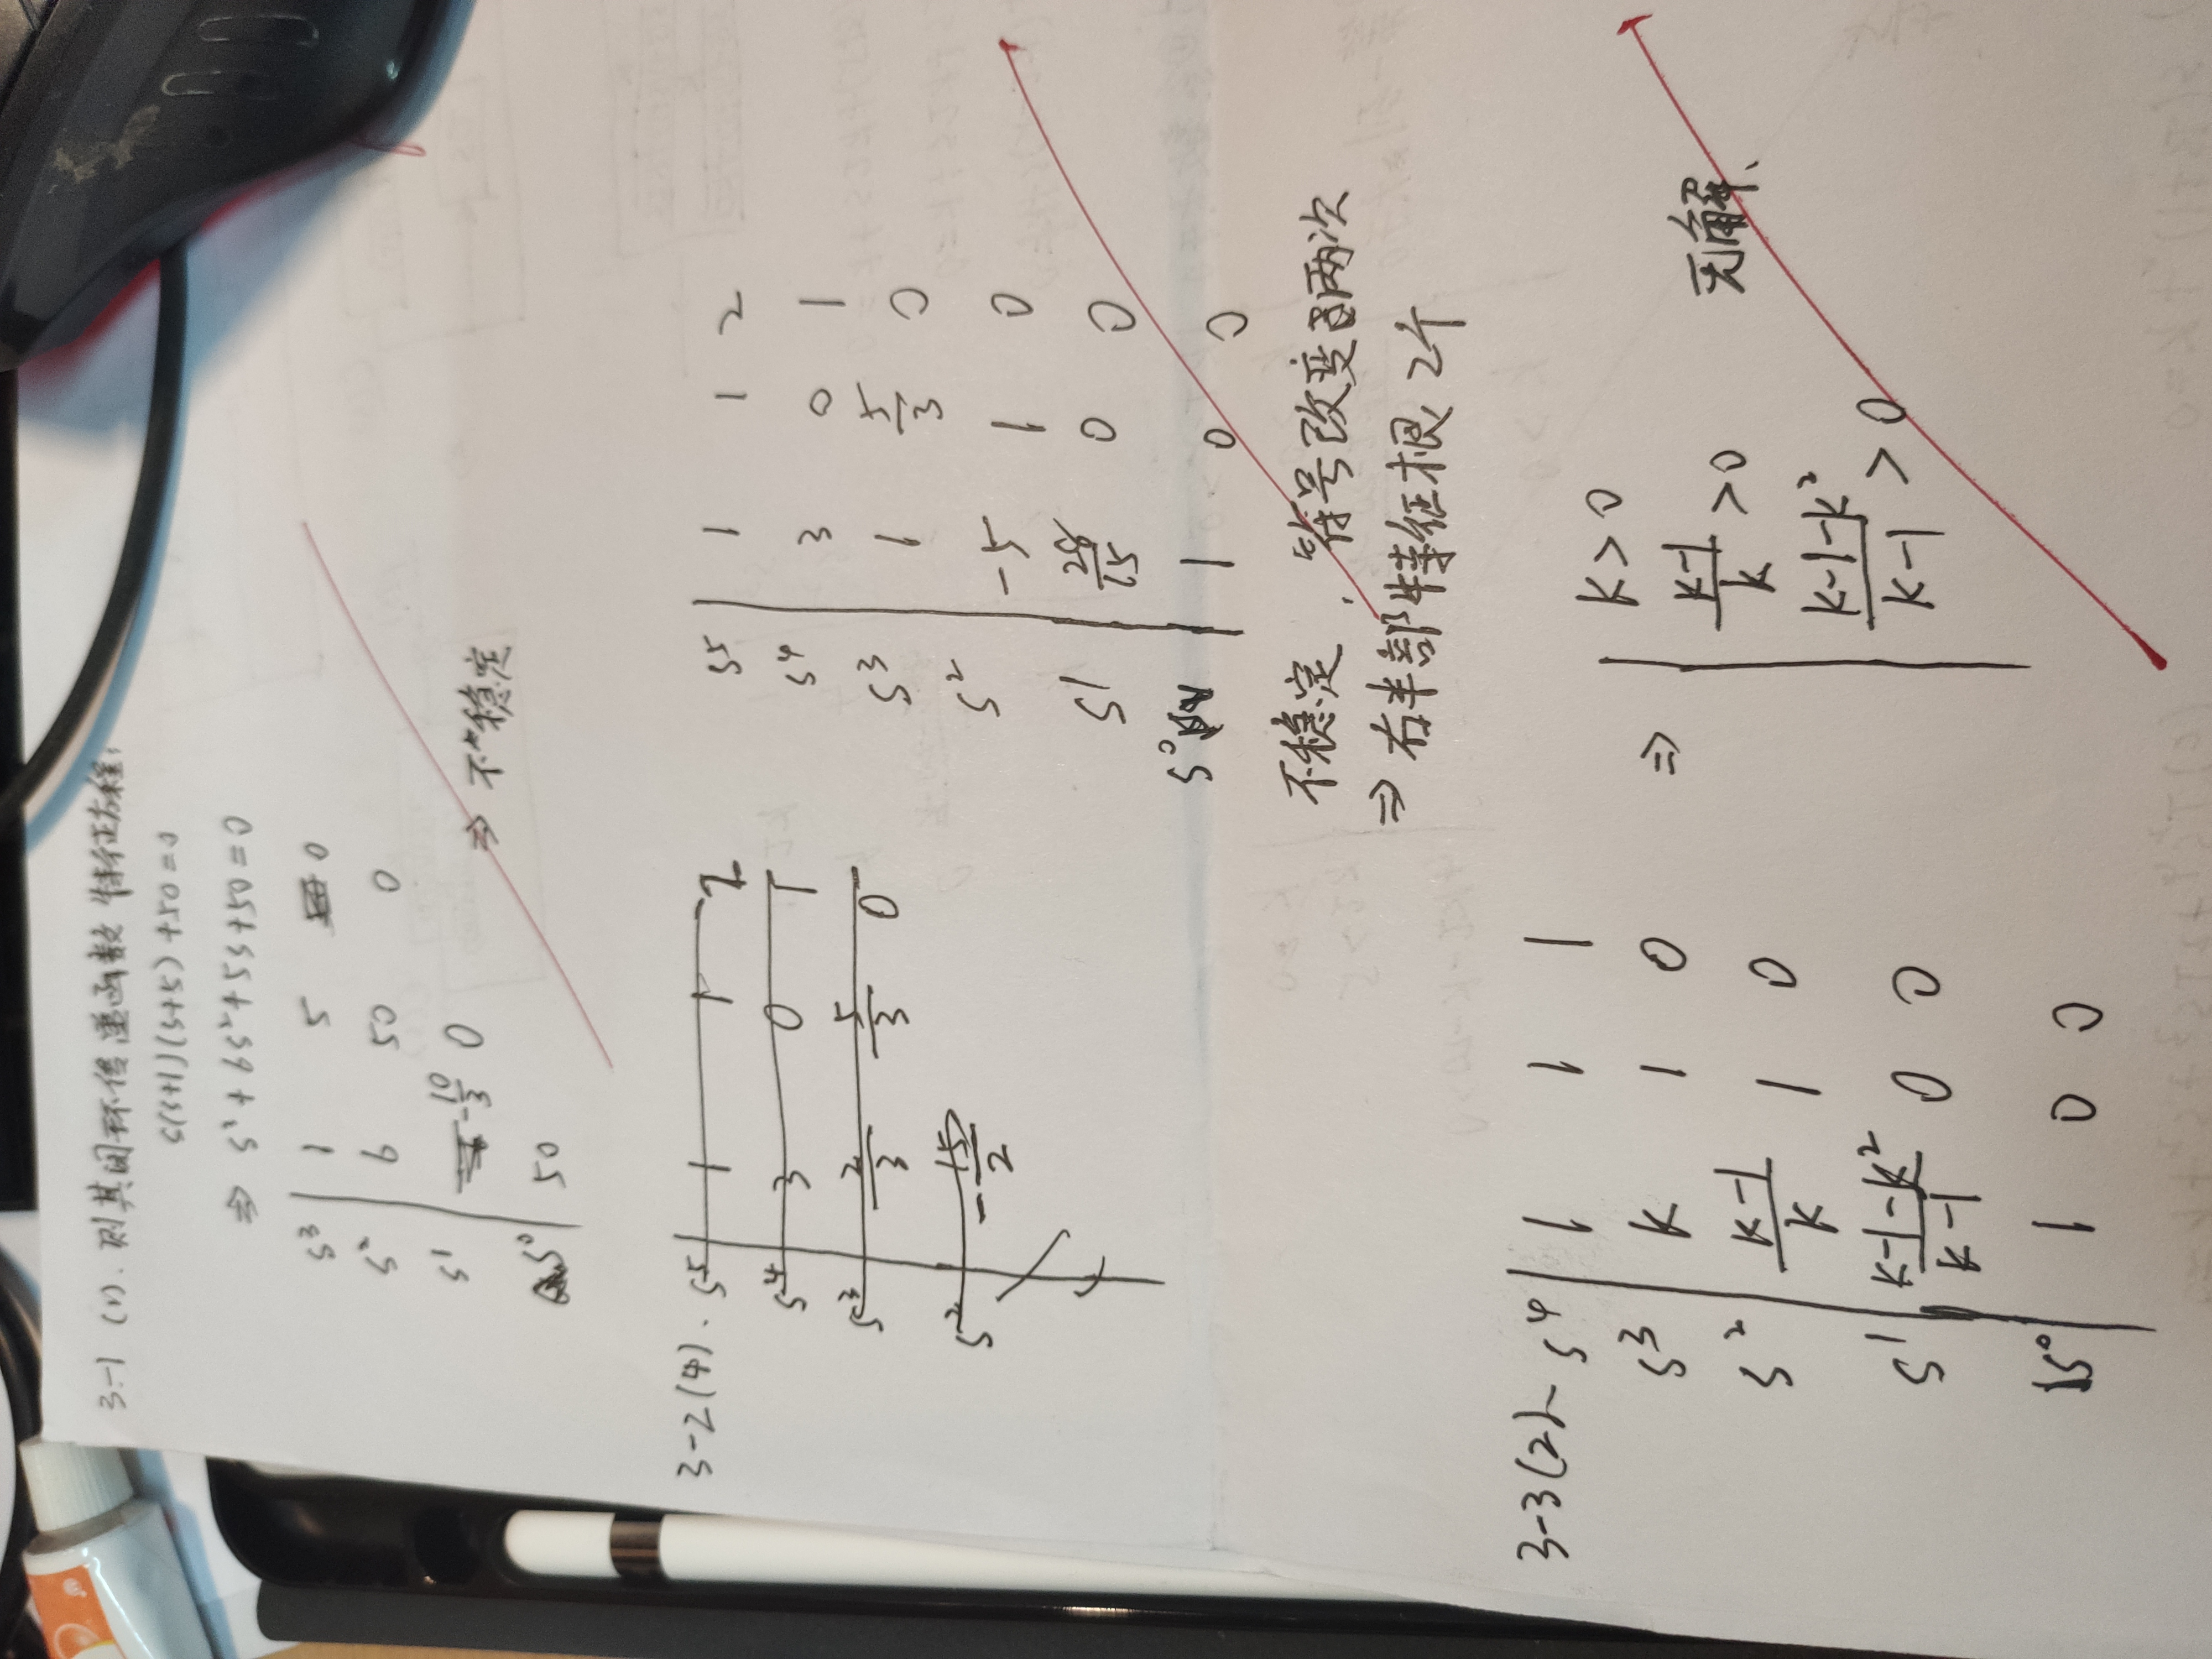 3-1 (1). 则其闭环传递函数特征方程:
s(s+1)(s+5)+50=0
⇒ s³+6s²+5s+50=0
s³ 1 5 0
s² 6 50 0
s¹ -10/3 0 ⇒ 不稳定
s⁰ 50
3-2(4). s⁵ 1 1 2
s⁴ 3 0 1
s³ 2/3 5/3 0
s² -15/2
s⁵ 1 1 2
s⁴ 3 0 1
s³ 1 5/3 0
s² -5 1 0
s¹ 28/15 0 0
s⁰ 1 0 0
不稳定, 符号改变两次
⇒ 右半部特征根 2个
3-3(2). s⁴ 1 1 1
s³ k 1 0
s² (k-1)/k 1 0
s¹ (k-1-k²)/(k-1) 0 0
s⁰ 1 0 0
⇒ k>0
(k-1)/k >0 无解、
(k-1-k²)/(k-1) >0